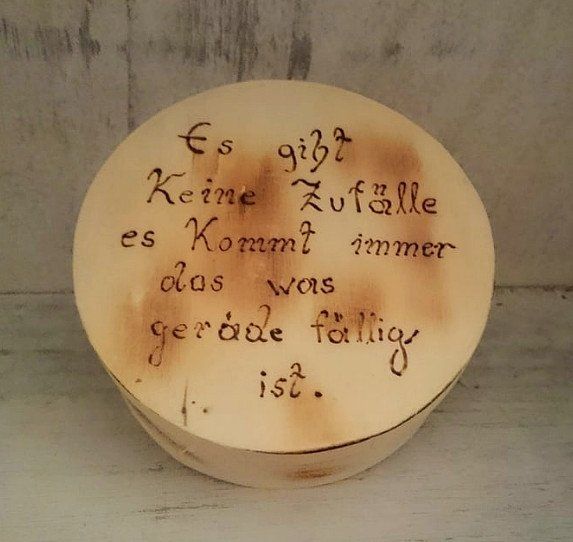 Es gibt
Keine Zufälle
es Kommt immer
das was
gerade fällig
ist.